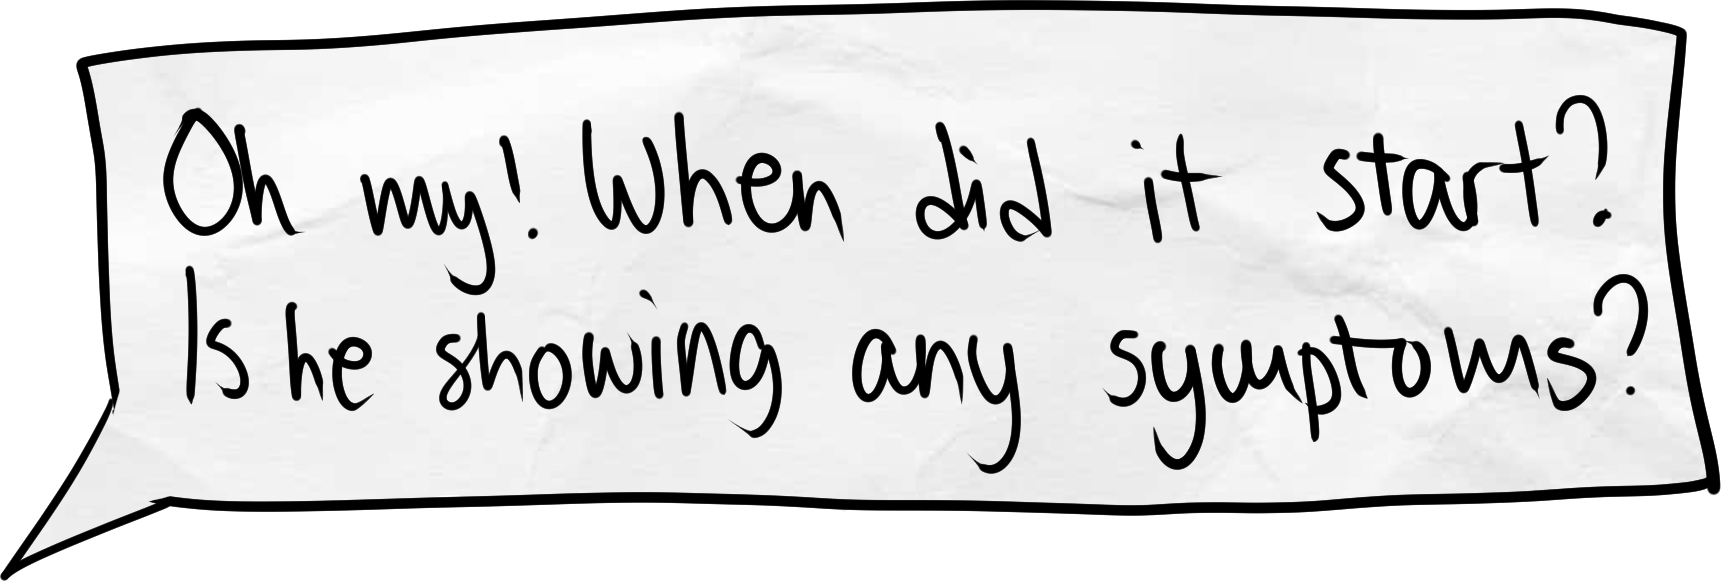 Oh my! When did it start?
Is he showing any symptoms?